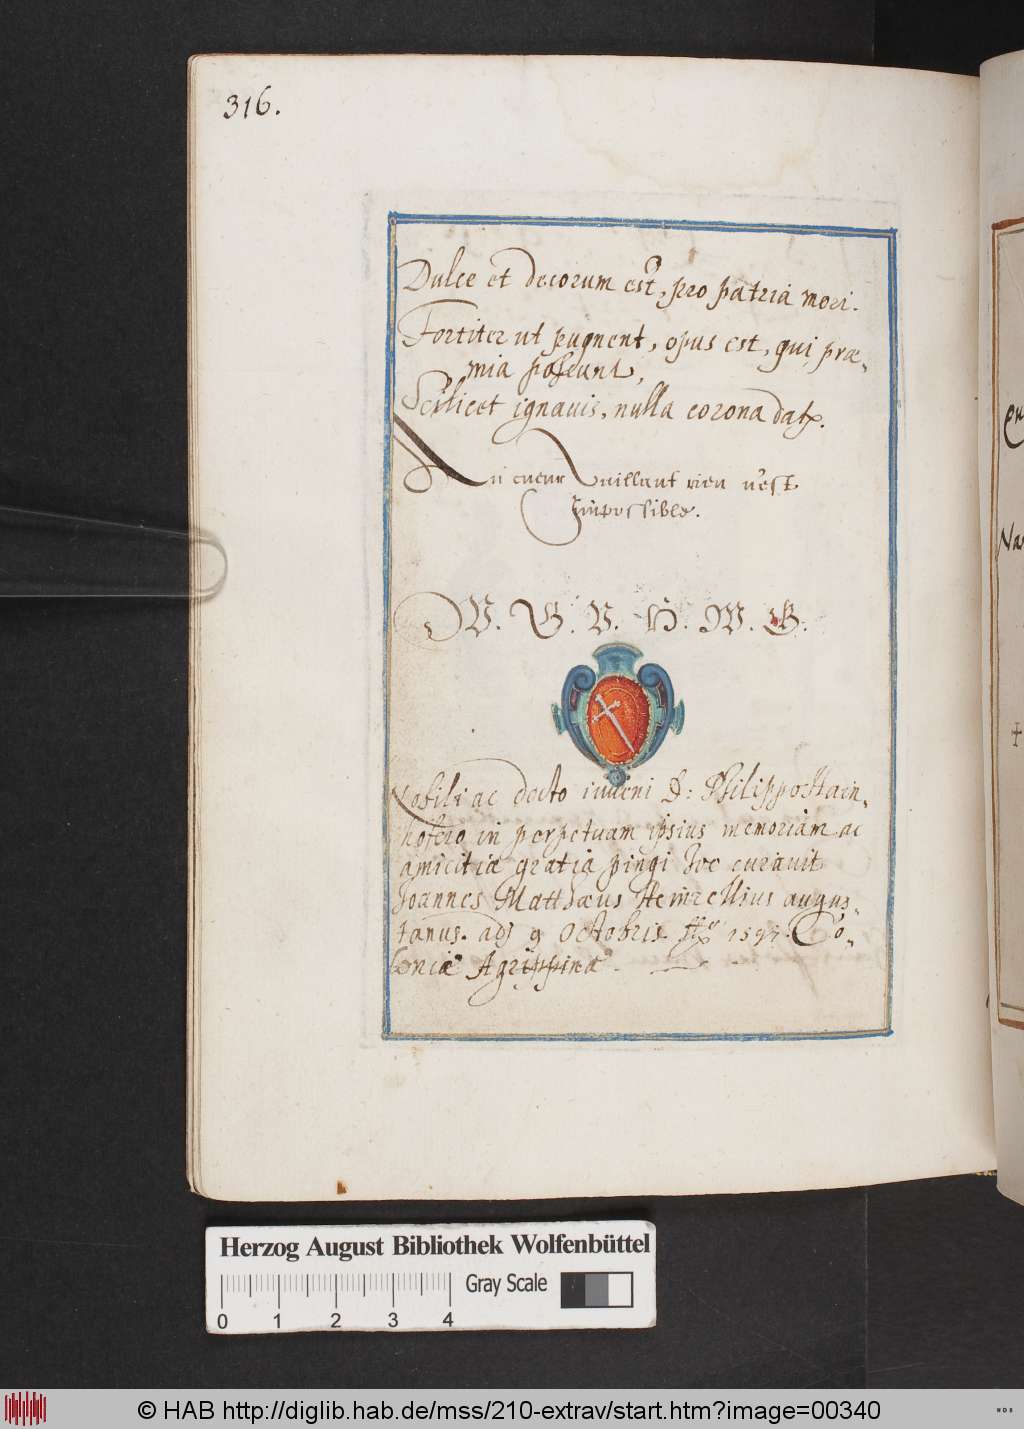 316.
Dulce et decorum est, pro patria mori.
Fortiter ut pugnent, opus est, qui præ-
mia poscunt,
Scilicet ignavis, nulla corona datr.
Un cueur vaillant rien n'est
Impossible.
W. G. V. H. W. G.
Nobili ac docto iuveni D: Philippo Hain-
hofero in perpetuam ipsius memoriam ac
amicitiæ gratia pingi hoc curavit
Joannes Matthæus Heinzelius augus-
tanus. adj 9 Octobris 1597. Co-
loniæ Agrippinæ.
Herzog August Bibliothek Wolfenbüttel
Gray Scale
0 1 2 3 4
© HAB http://diglib.hab.de/mss/210-extrav/start.htm?image=00340